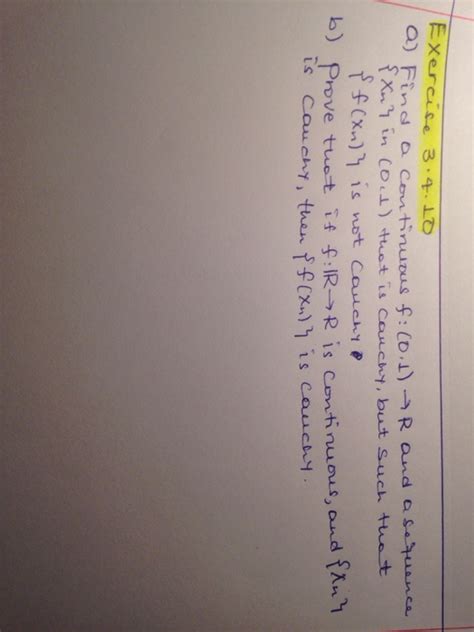 Exercise 3.4.10
a) Find a continuous f:(0,1) → R and a sequence
{xn} in (0,1) that is cauchy, but such that
{f(xn)} is not cauchy.
b) Prove that if f:R→R is continuous, and {xn}
is cauchy, then {f(xn)} is cauchy.